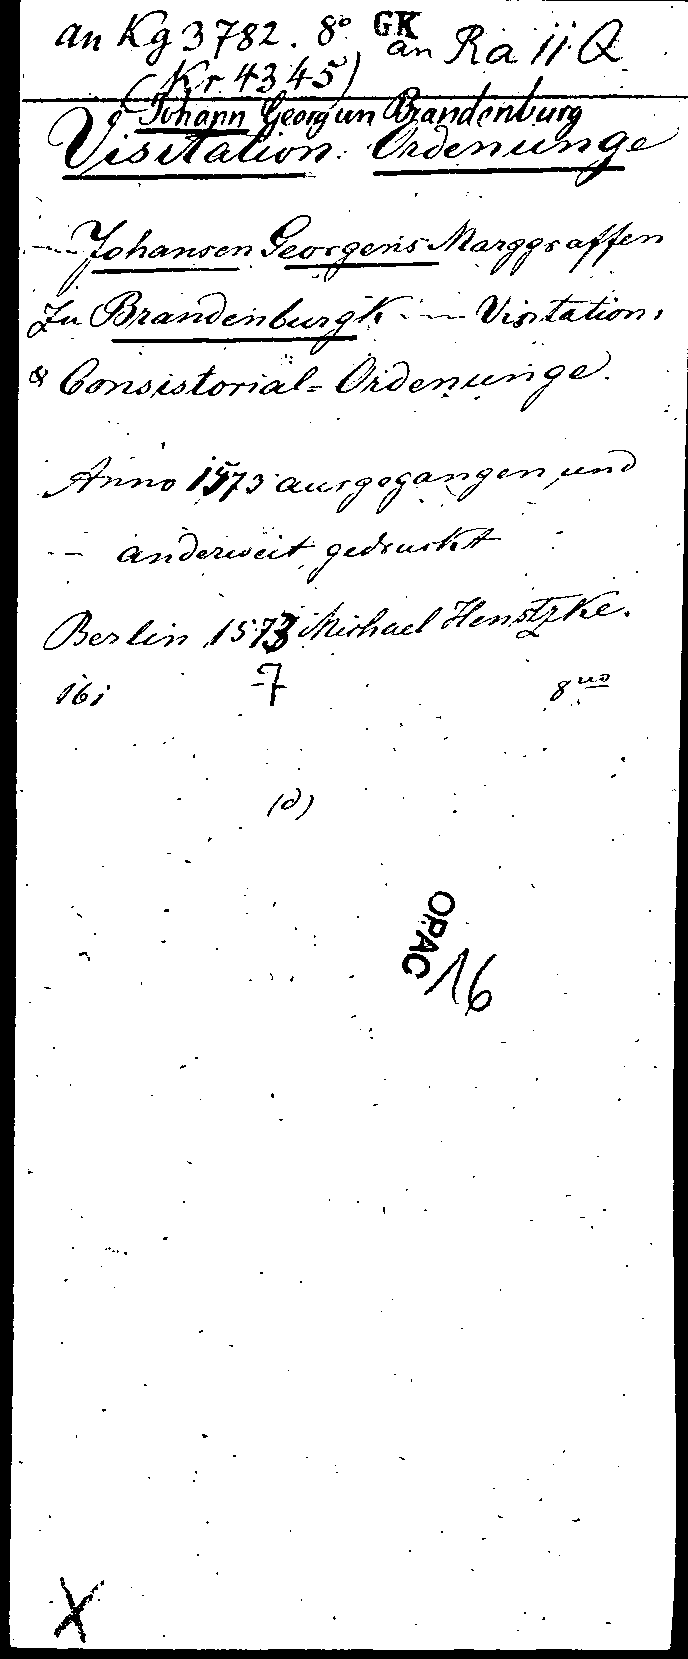 an Kg 3782. 8° GK an Ra 11 Q
(Kr 4345)
Johann Georg un Brandenburg
Visitation: Ordenunge
— Johansen Georgens Marggraffen
Zu Brandenburgk — Visitation,
& Consistorial-Ordenunge.
Anno 1573 ausgegangen und
— anderweit gedruckt
Berlin 1573 Michael Henstzke.
161 7 8uo
(d)
OPAC
96
X